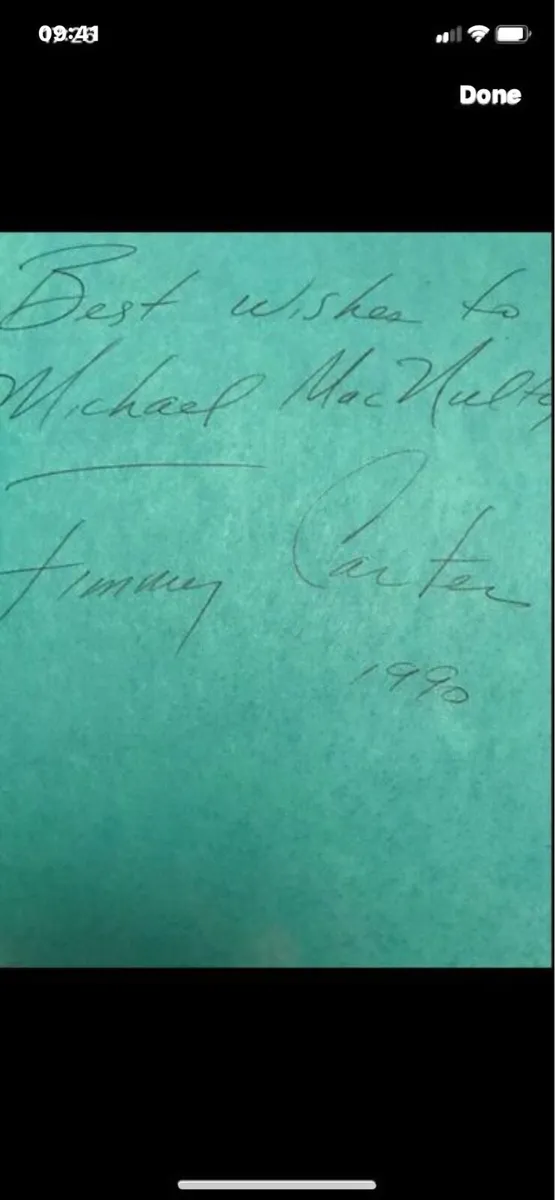 Done
Best wishes to
Michael MacNulty
Jimmy Carter
1990